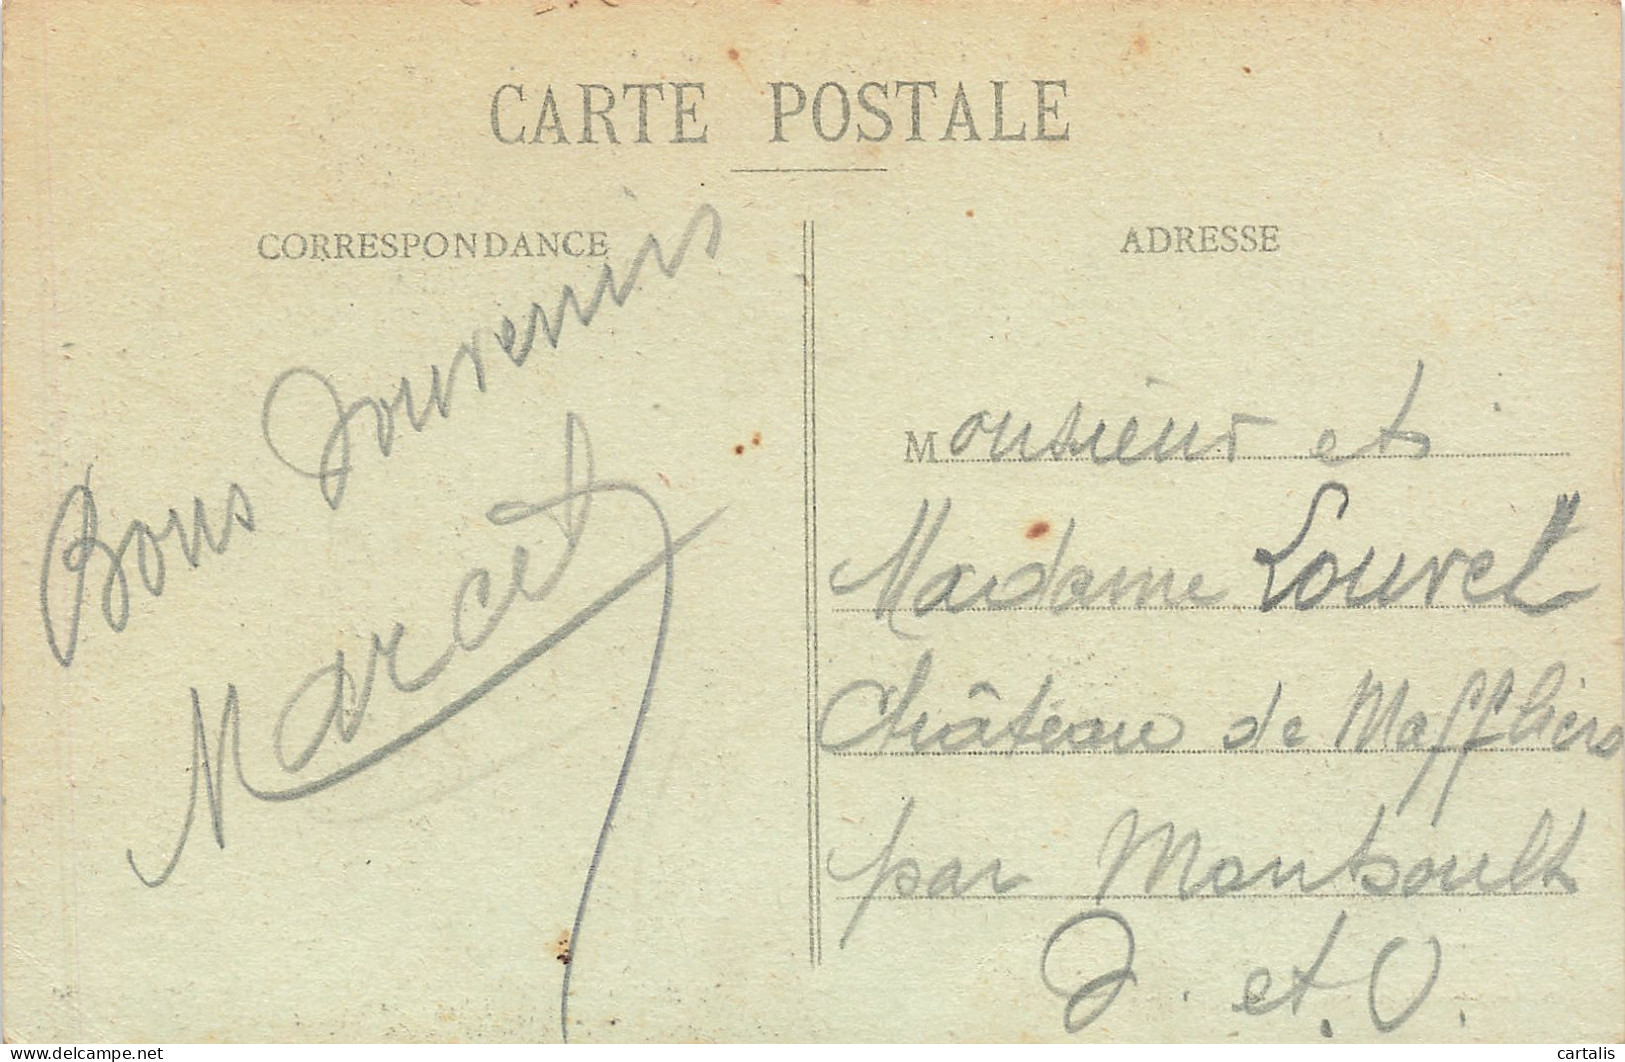 CARTE POSTALE
CORRESPONDANCE
ADRESSE
Bons Souvenirs
Marcel
Monsieur et
Madame Louvet
Château de Maffliers
par Montsoult
S. et. O.
delcampe.net
cartalis